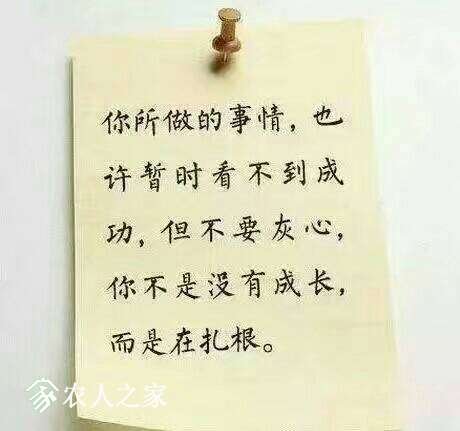 你所做的事情，也
许暂时看不到成
功，但不要灰心，
你不是没有成长，
而是在扎根。
农人之家